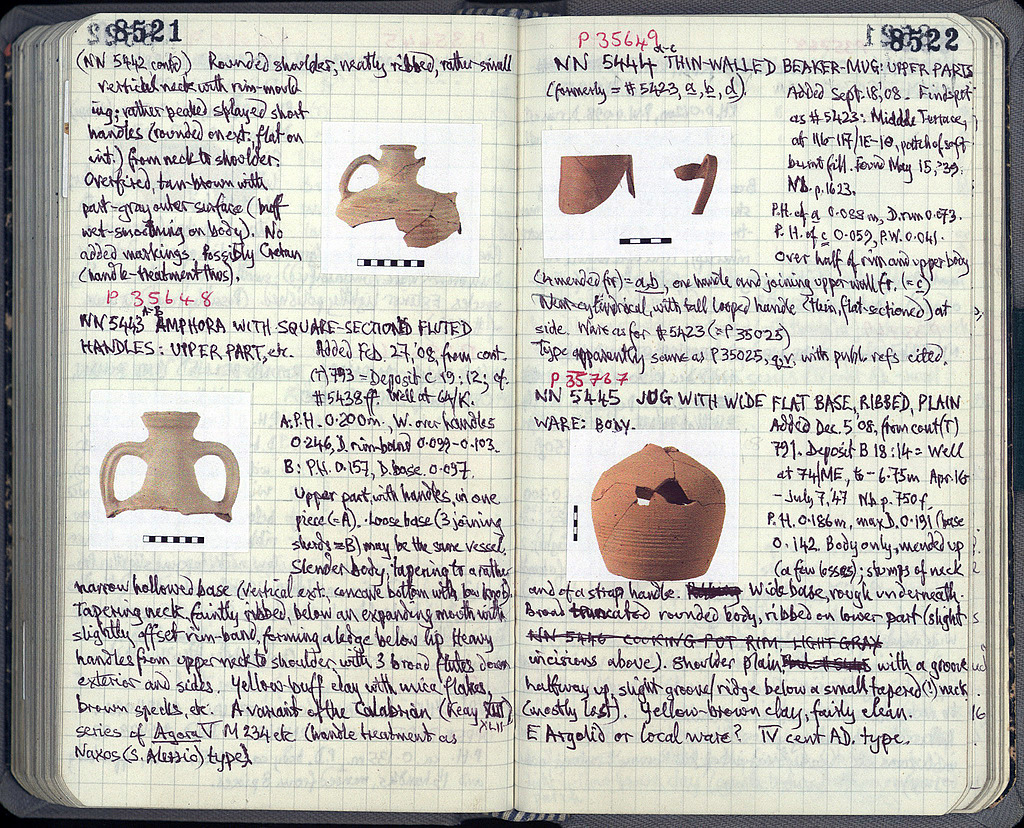 8521
(NN 5442 contd) Rounded shoulder, neatly ribbed, rather small
vertical neck with rim-mould
ing; rather peaked splayed short
handles (rounded on ext., flat on
int.) from neck to shoulder.
Overfired, tan-brown with
part-gray outer surface (buff
wet-smoothing on body). No
added markings. Possibly Cretan
(handle-treatment thus).
P 35648
A-B
NN 5443 AMPHORA WITH SQUARE-SECTIONED FLUTED
HANDLES: UPPER PART, etc. Added Feb. 27, '08, from cont.
(T) 793 = Deposit C 19:12; cf.
#5438ff. Well at 64/K.
A: P.H. 0.200m., W. over handles
0.246, D. rim-band 0.099-0.103.
B: P.H. 0.157, D. base. 0.097.
Upper part, with handles, in one
piece (=A). Loose base (3 joining
sherds =B) may be the same vessel.
Slender body, tapering to a rather
narrow hollowed base (vertical ext., concave bottom with low knob).
Tapering neck, faintly ribbed, below an expanding mouth with
slightly offset rim-band, forming a ledge below lip. Heavy
handles from upper neck to shoulder with 3 broad flutes down
exterior and sides. Yellow-buff clay with mica flakes,
brown specks, etc. A variant of the Calabrian (Keay
XLII
series of Agora V M 234 etc (handle treatment as
Naxos (S. Alessio) type)
8522
P 35649
a-c
NN 5444 THIN-WALLED BEAKER-MUG: UPPER PARTS
(formerly = #5423, a, b, d)
Added Sept. 18, '08. Findspot
as #5423: Middle Terrace,
at 116-117/IE-10, patch of soft
burnt fill. Found May 15, '39.
Nb. p. 1623.
P.H. of a 0.088 m, D. rim 0.073.
P.H. of c 0.059, P.W. 0.041.
Over half of rim and upper body
(Amended for) = a,b, one handle and joining upper wall fr. (= c)
Near-cylindrical, with tall looped handle (thin, flat-sectioned) at
side. Ware as for #5423 (= P 35025)
Type apparently same as P 35025, q.v. with publ. refs cited.
P 35767
NN 5445 JUG WITH WIDE FLAT BASE, RIBBED, PLAIN
WARE: BODY.
Added Dec. 5 '08, from cont (T)
791. Deposit B 18:14 = Well
at 74/ME, to -6.75m. Apr. 16
- July 7, '47 Nb. p. 750f.
P.H. 0.186m, max D. 0.191 (base
0.142. Body only, mended up
(a few losses); stumps of neck
and of a strap handle. Wide base, rough underneath.
Broad truncated rounded body, ribbed on lower part (slight
NN 5446 COOKING-POT RIM, LIGHT GRAY
incisions above). Shoulder plain with a groove
halfway up, slight groove/ridge below a small tapered (!) neck
(mostly lost). Yellow-brown clay, fairly clean.
E Argolid or local ware? IV cent AD. type.